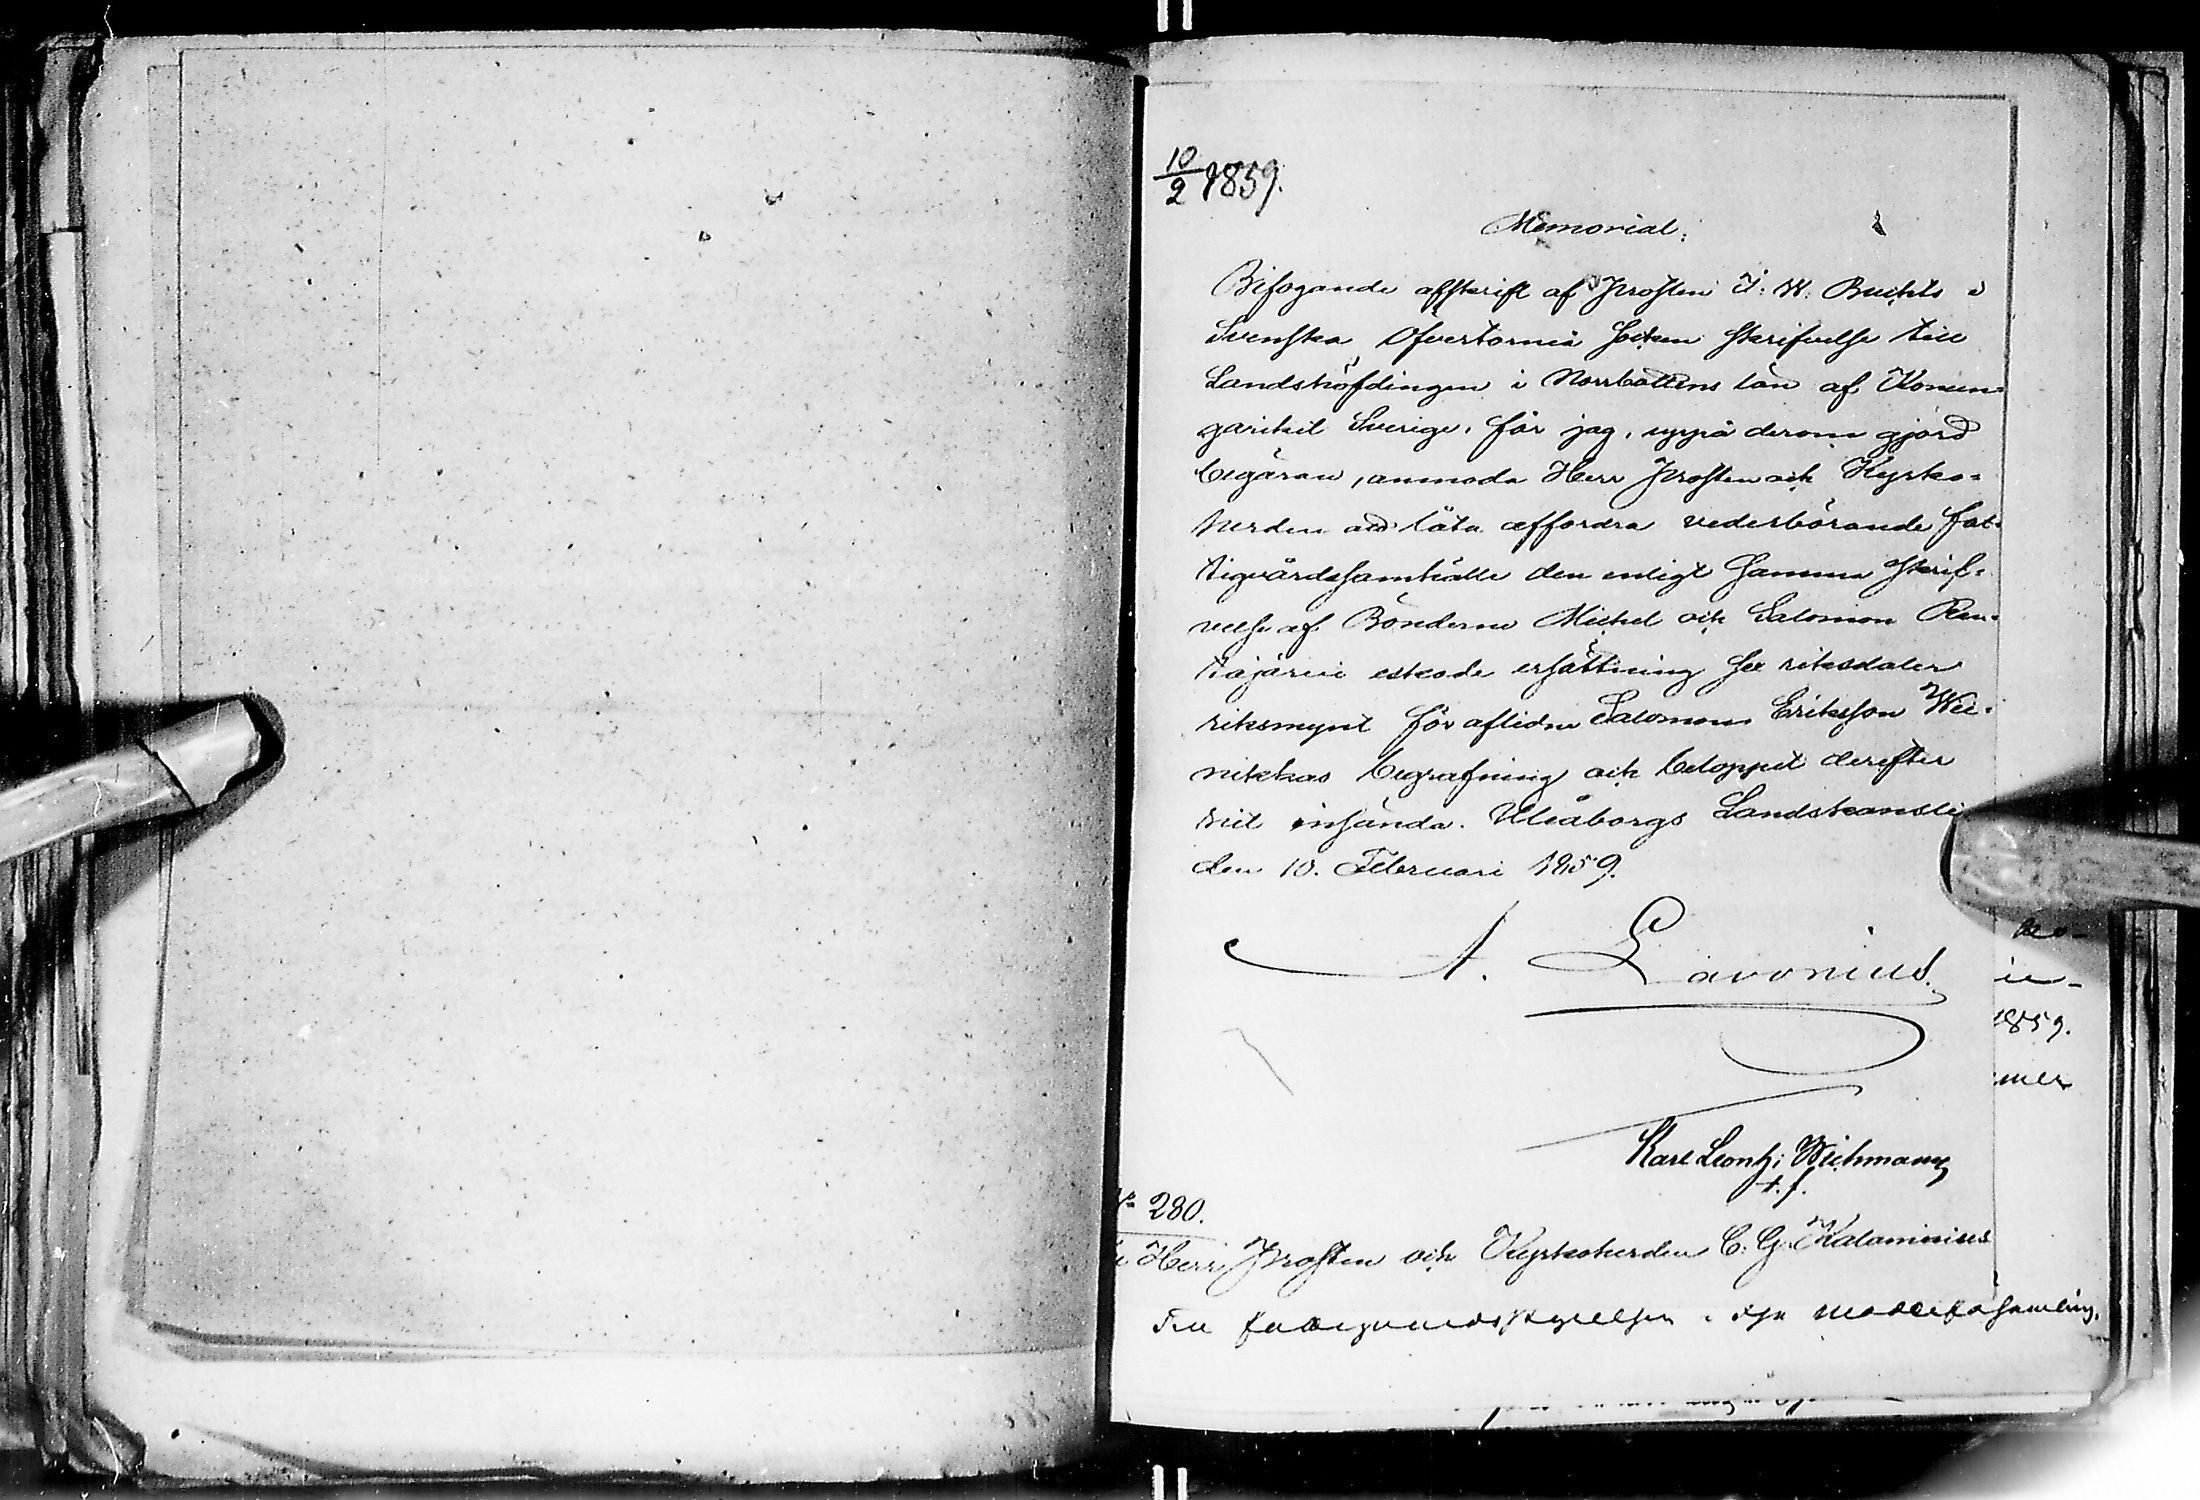 10/2 1859.
Memorial:
Bifogande afskrift af Prosten J: W: Buchts i
Svenska Öfvertorneå socken skrifvelse till
Landshöfdingen i Norrbottens län af Konun-
gariket Sverige, får jag, uppå derom gjord
begäran, anmoda Herr Prosten och Kyrko-
herden att låta affordra vederbörande fat-
tigvårdssamhälle den enligt samma skrif-
velse af Bönderne Michel och Salomon Ran-
tajärvi äskade ersättning sex riksdaler
riksmynt för aflidne Salomon Eriksson Wei-
nikkas begrafning och beloppet derefter
hit insända. Uleåborgs Landskansli
den 10. Februari 1859.
A. Lavonius.
Karl Leontj: Wichmann,
t. f.
No 280.
Herr Prosten och Kyrkoherden C. G. Kalamnius
Till fattigvårdsstyrelsen i församling.
1859.